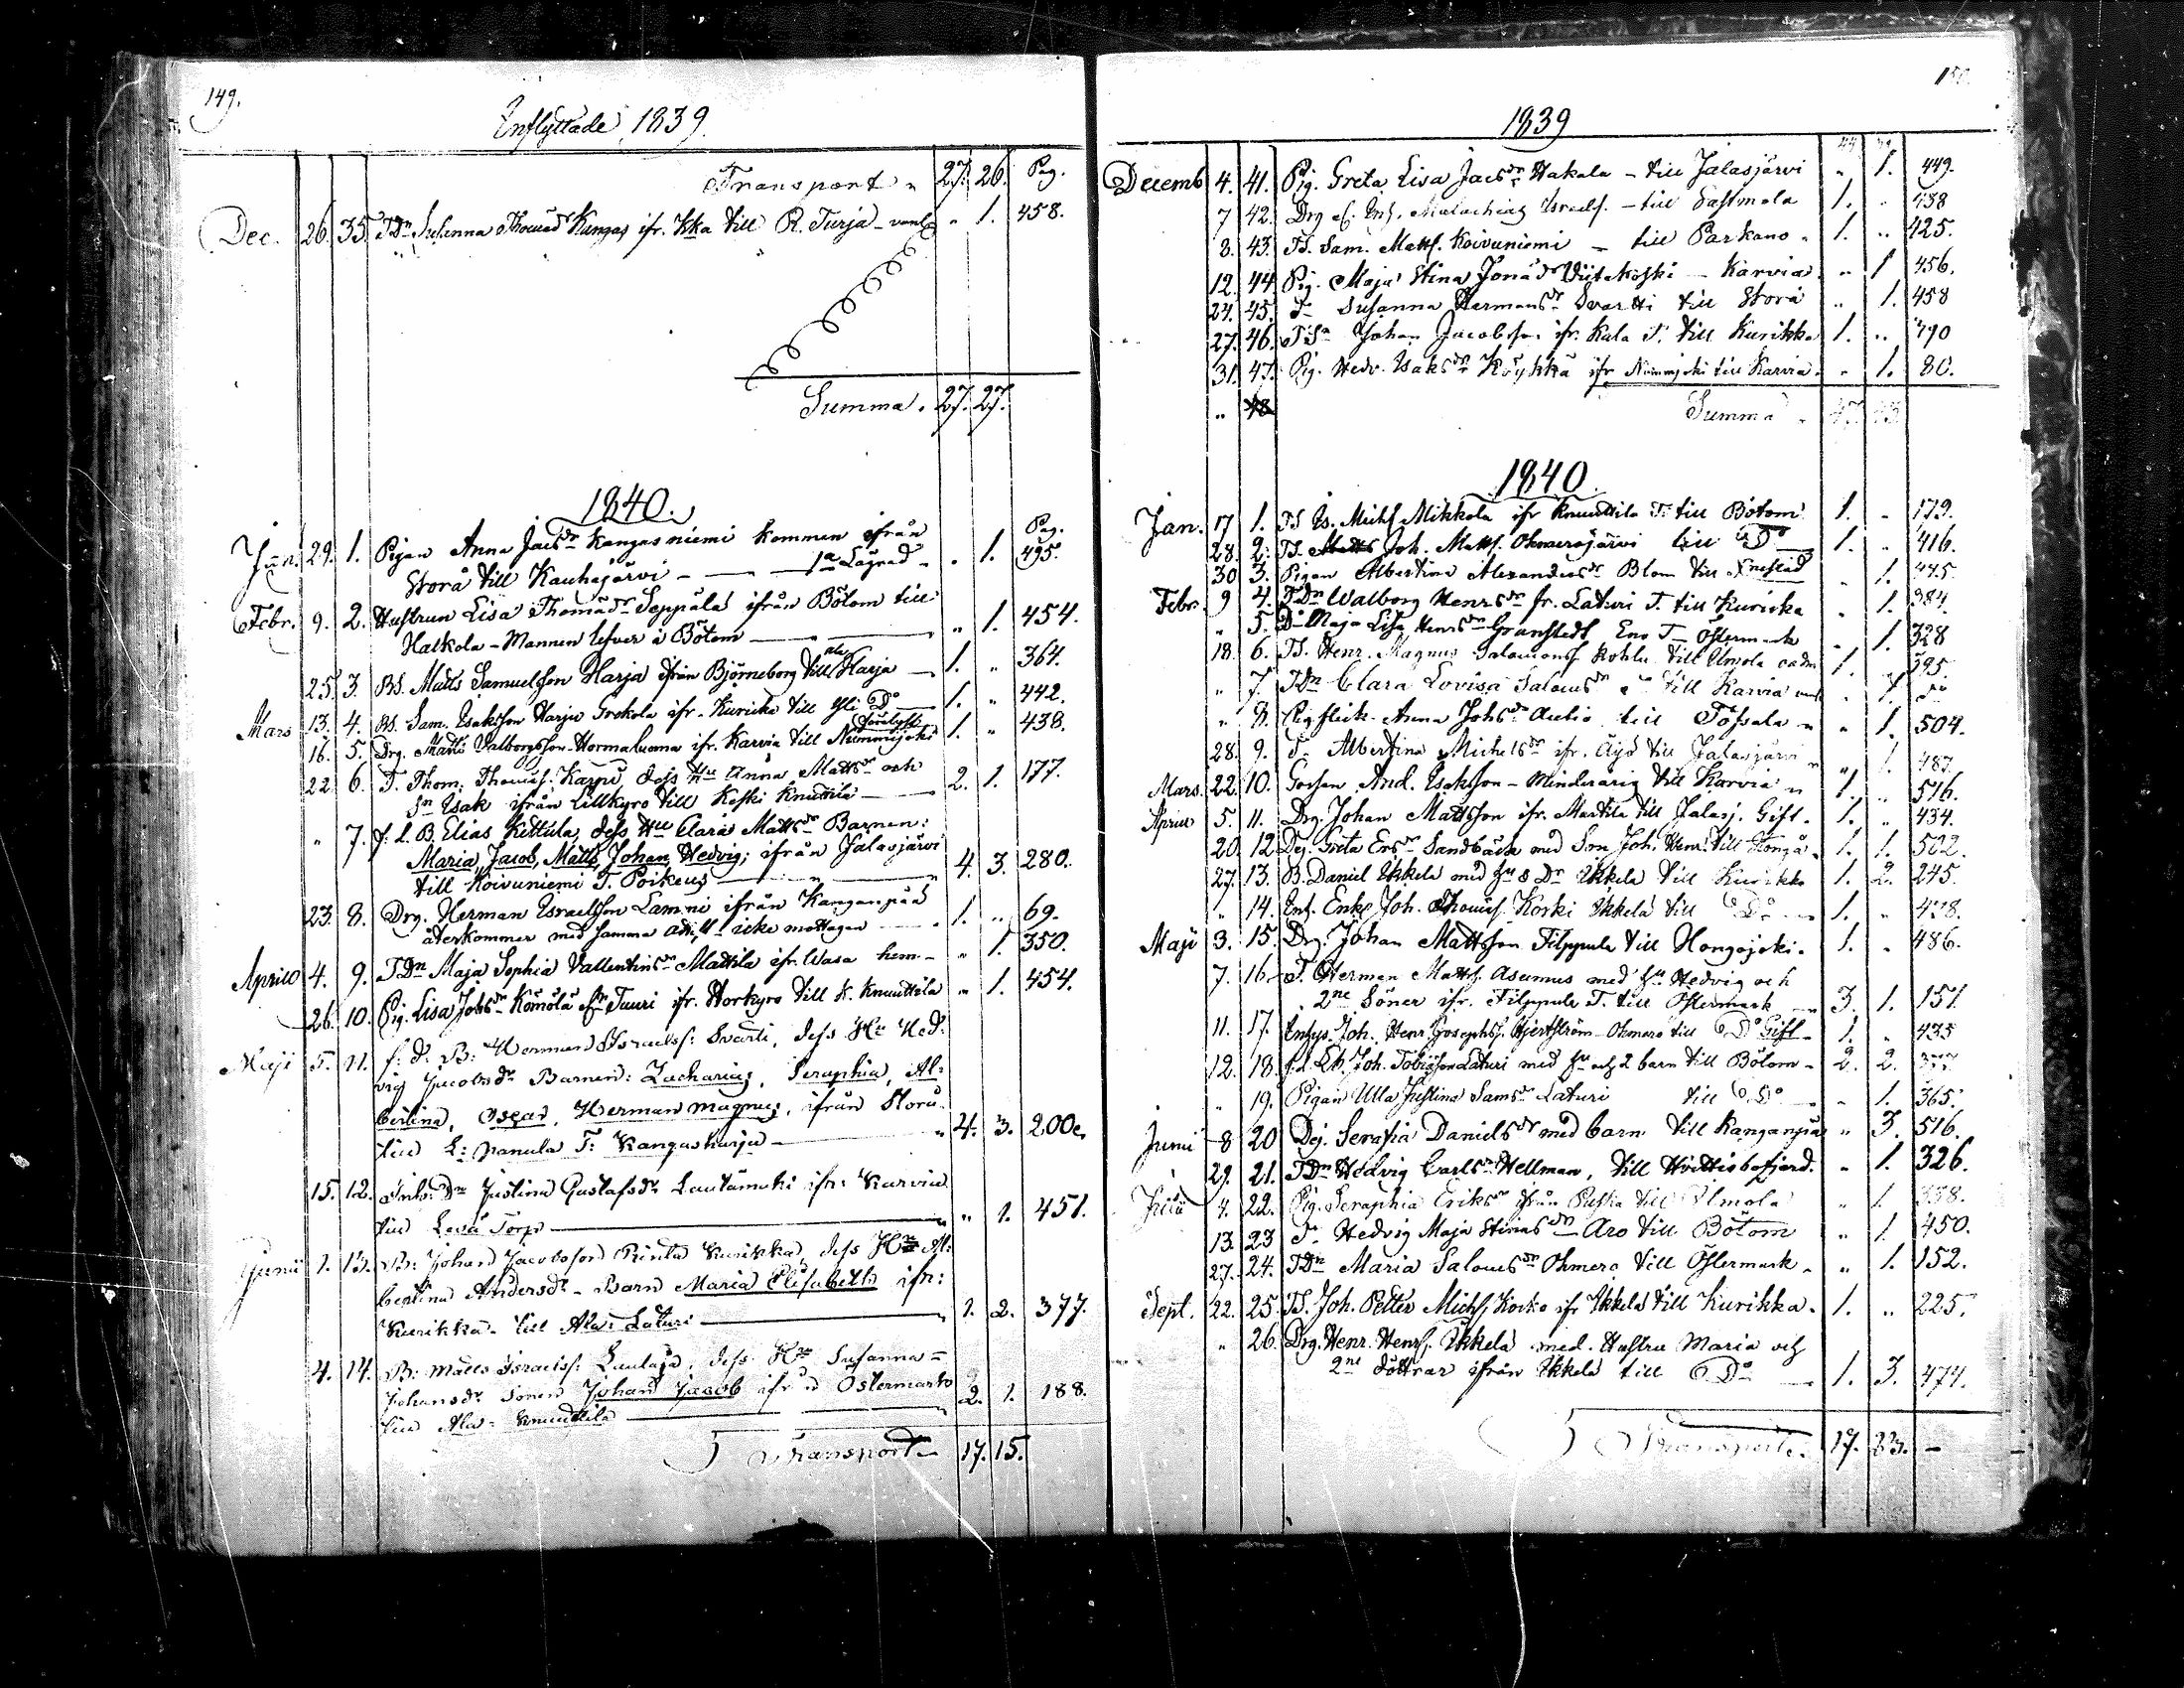 149.
Inflyttade 1839.
Transport „ 27. 26. Pag.
Dec. 26. 35. TDn Susanna Thomasdr Kangas ifr. Ikka till R. Turja „ 1. 458.
Summa. 27. 27.
1840.
Pag.
Jan. 29. 1. Pigan Anna Jacsdr Kangasniemi kommen ifrån
Storå till Kauhajärvi — „ 1. 495.
Febr. 9. 2. Hustrun Lisa Thomasdr Seppälä ifrån Bötom till
Halkola – Mannen lefver i Bötom — „ 1. 454.
25. 3. BS. Matts Samuelsson Harja ifrån Björneborg till Harja — 1. „ 364.
Mars 13. 4. BS. Sam. Isaksson Harju ifr. Kuricka till Do — 1. „ 442.
16. 5. Drg. Matts Valborgsson Hormaluoma ifr. Karvia till Nummijoki 1. „ 438.
22. 6. T. Thom. Thomäs. Karpi dess Hu Anna Mattsdr och
Sn Isak ifrån Lillkyro till Keski Knuttila — 2. 1. 177.
„ 7. f. d. B Elias Kettula, dess Hu Clara Mattsdr Barnen:
Maria, Jacob, Matts, Johan, Hedvig; ifrån Jalasjärvi
till Koivuniemi T. Poikeus — 4. 3. 280.
23. 8. Drg. Herman Israelsson Lammi ifrån Kanganpää
återkommer med samma icke mottagen — 1. „ 69.
Aprill 4. 9. TDn Maja Sophia Vallentinsdr Mattila ifr. Wasa hem – „ 1. 350.
26. 10. Pig. Lisa Johsdr Kömölä Tuuri ifr. Storkyro till K. Knuuttila „ 1. 454.
Maji 5. 11. f. d. B: Herman Israelss: Svarti, dess Hu Hed:
vig Jacobsdr Barnen: Zacharias, Seraphia, Al:
bertina, Oscar, Herman Magnus, ifrån Storå
till L: Panula T: Kangasharju — „ 4. 3. 200c.
15. 12. Justina Gustafsdr Lautamäki ifr: Karvia
till Levä Torp — „ 1. 451.
Junii 1. 13. B: Johan Jacobsson Rinta Kurikka, dess Hu Al:
bertina Andersdr – Barn Maria Elisabeth ifr:
Kurikka till Ala-Laturi — 1. 2. 377.
4. 14. B: Matts Israelss: Luulaja, dess Hu Susanna
Johansdr Sonen Johan Jacob ifrån Östermark
till Ala-Knuuttila — 2. 1. 188.
Transport 17. 15.
150.
1839
Decemb 4. 41. Pig. Greta Lisa Jacsdr Hakala – till Jalasjärvi „ 1. 449.
7 42. Drg Malachias Israels. – till Sastmola 1. „ 438
8. 43. TS. Sam. Matts. Koivuniemi – till Parkano 1. „ 425.
12. 44 Pig. Maja Stina Jonäsdr Viitakoski – Karvia „ 1 456.
24. 45. Susanna Hermansdr Svartti till Storå „ 1. 458
27. 46. TSn Johan Jacobsson ifr. Kala T. till Kurikka 1. „ 490
31. 47. Pig. Hedv. Isaksdr Köykkä ifr Nummijoki till Karvia „ 1. 80.
„ 48
Summa
1840.
Jan. 17 1. TS Is. Michs Mikkola ifr Knuuttila T. till Bötom 1. „ 179.
28. 2. TS. Matts Joh. Matts. Ohmerojärvi till Do 1. „ 416.
30 3. Pigan Albertina Alexandersdr Blom till „ 1. 445.
Febr. 9 4. TDn Walborg Henrsdr fr. Laturi T. till Kuricka „ 1. 384.
„ 5. Do Maja Lisa Henrsdr Granstedt Östermark „ 1. 328
18. 6. TS. Henr. Magnus Salomonss Kohlu till Ilmola 1. „ 395.
„ 7. TDn Clara Lovisa Salomsdr till Karvia „ 1.
„ 8. Pigflick. Anna Johsdr Autio till Töfsala „ 1. 504.
28. 9. Albertina Michelsdr ifr. Äijö till Jalasjärvi „ 1. 487.
Mars 22. 10. Gossen And. Isaksson – Minderårig till Karvia 1. „ 516.
Aprill 5. 11. Drg. Johan Mattsson ifr. Marttila till Jalasj. Gift. 1. „ 434.
20. 12 Dej. Greta Ersdr Sandbäck med Son Joh. Henr. till Hongå. 1. 1. 502.
27. 13. B. Daniel Ikkela med Hu & Dr Ikkela till Kurikka 1. 2. 245.
„ 14. Enkl Joh. Thomäs. Korki Ikkelä till Do 1. „ 428.
Maji 3. 15. Drg. Johan Mattsson Filppula till Hongojoki. 1. „ 486.
7. 16. T. Herman Matts. Asumus med Hu Hedvig och
2ne Söner ifr. Filppula T. till Östermark 3. 1. 151.
11. 17. Joh. Henr Josephs. Hjertström Ohmero till Do Gift 1. „ 435
12. 18. Joh. Tobiasson Laturi med Hu och 2 barn till Bötom – 2. 2.
„ 19. Pigan Ulla Justina Samsdr Laturi till Do „ 1. 365.
Junii 8 20 Dej. Serafia Danielsdr med barn till Kanganpää „ 3. 516.
29. 21. TDn Hedvig Carlsdr Hellman, till Hvittisbofjerd. „ 1. 326.
Julii 4. 22. Pig. Seraphia Eriksdr ifrån Puska till Ilmola „ 1. 358.
13. 23 Hedvig Maja Stinasdr Aro till Bötom „ 1. 450.
27. 24. TDn Maria Salomsdr Ohmero till Östermark. „ 1. 152.
Sept. 22. 25. TS. Joh. Petter Michs. Korko ifr Ikkelä till Kurikka. 1. „ 225.
„ 26. Drg. Henr. Henrs. Ikkelä med Hustru Maria och
2ne döttrar ifrån Ikkelä till Do 1. 3. 474.
Transport. 17. 23. –